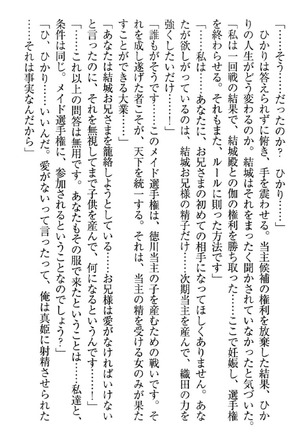 「そう……だったのか？　ひかり……」
ひかりは答えられずに俯き、手を震わせる。当主候補の権利を放棄した結果、ひか
りの人生がどう変わるのか。結城はまったく聞かされていなかったのだ。
「私は一回戦の結果で、結城殿との伽の権利を勝ち取った……ここで妊娠し、選手権
を終わらせる。それもまた、ルールに則った方法です」
「……私は……あなたに、お兄さまの初めての相手になってほしくありません。あな
たが欲しがっているのは、結城お兄様の精子だけ……次期当主を産んで、織田の力を
強くしたいだけ……！」
「誰もがそうです……このメイド選手権は、徳川当主の子を産むための戦いです。そ
れを成し遂げた者こそが、天下を統一する。それは、当主の精を受ける女のみが果た
すことができる大業……」
「あなたは結城お兄さまを籠絡しようとしている……お兄様は愛がなければいけない
と言ったのに、それを無視してまで子供を産んで、何になるというんです……！」
「……これ以上の問答は無用です。あなたもその服で来たということは……私達と、
条件は同じ。メイド選手権に、参加されるということなのでしょう？」
「ひ、ひかり……いいんだ。愛がないって言ったって、俺は真姫に射精させられた
……それは事実なんだから」